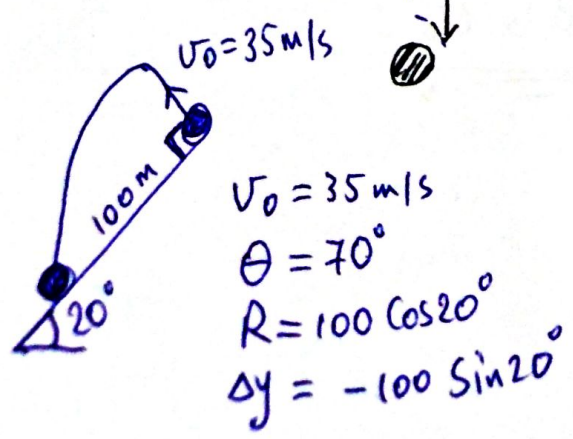 v₀=35m/s
100m
20°
v₀ = 35 m/s
θ = 70°
R = 100 Cos20°
Δy = -100 Sin20°